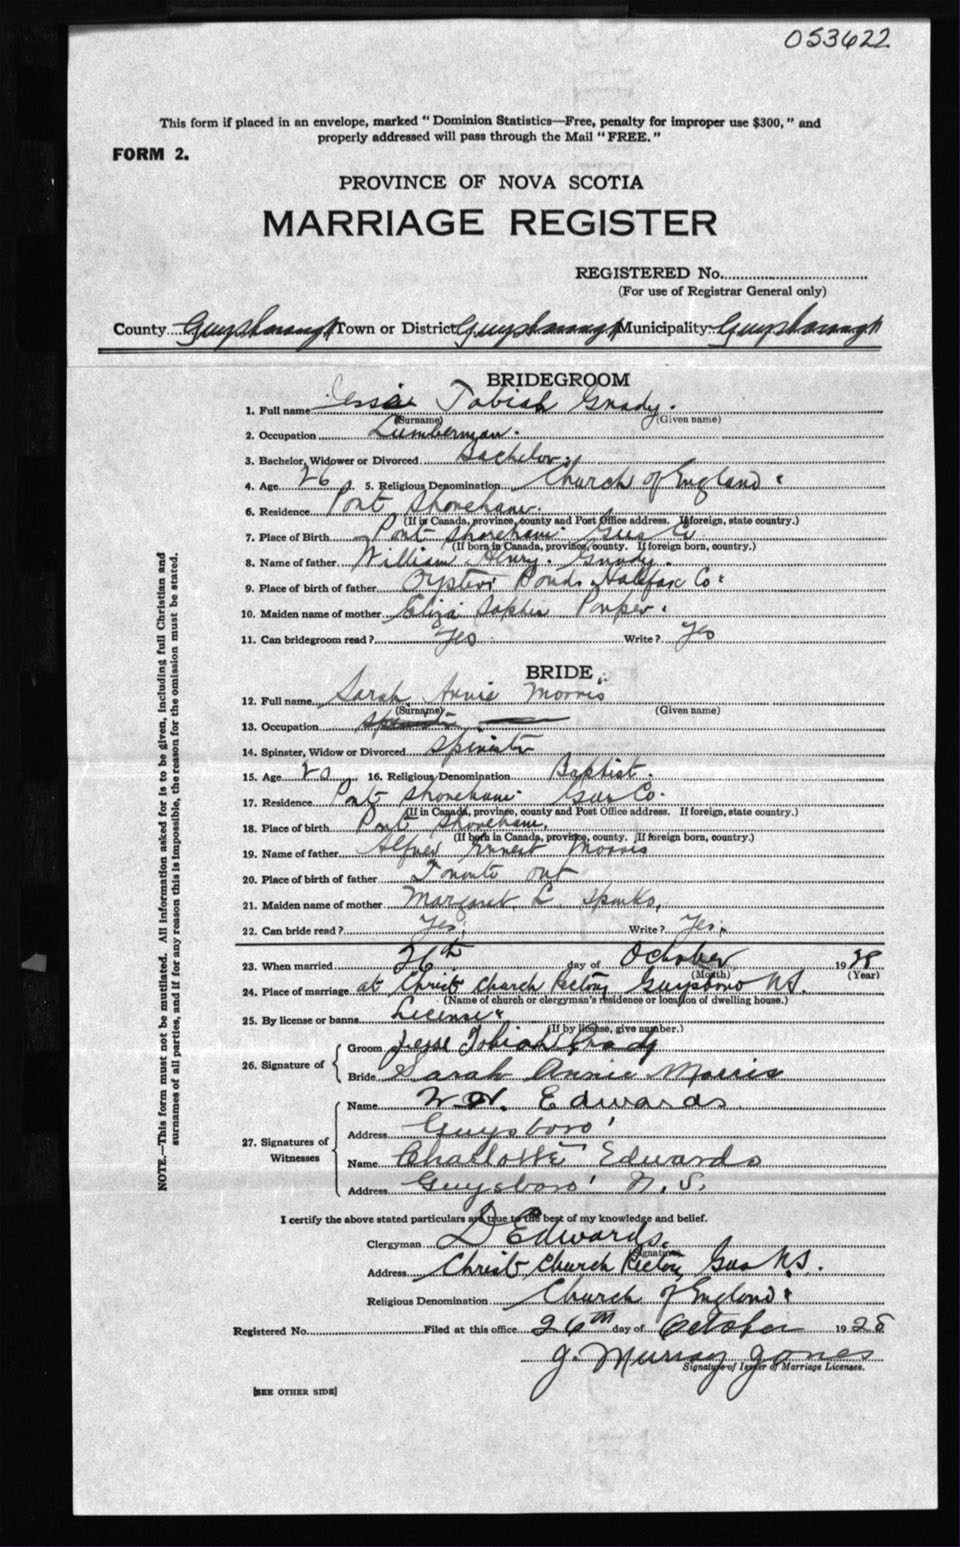 053622
This form if placed in an envelope, marked "Dominion Statistics—Free, penalty for improper use $300," and
properly addressed will pass through the Mail "FREE."
FORM 2.
PROVINCE OF NOVA SCOTIA
MARRIAGE REGISTER
REGISTERED No.
(For use of Registrar General only)
County Guysborough Town or District Guysborough Municipality Guysborough
BRIDEGROOM
1. Full name Tobiah Grady.
(Surname) (Given name)
2. Occupation Lumberman.
3. Bachelor, Widower or Divorced Bachelor.
4. Age 26 5. Religious Denomination Church of England
6. Residence Port Shoreham.
(If in Canada, province, county and Post Office address. If foreign, state country.)
7. Place of Birth Port Shoreham Gus Co
(If born in Canada, province, county. If foreign born, country.)
8. Name of father William Henry. Grady.
9. Place of birth of father Oyster Ponds Halifax Co
10. Maiden name of mother Eliza Sophia
11. Can bridegroom read? Yes Write? Yes
BRIDE
12. Full name Sarah Annie Morris
(Surname) (Given name)
13. Occupation
14. Spinster, Widow or Divorced Spinster
15. Age 20 16. Religious Denomination Baptist.
17. Residence Port Shoreham Gus Co.
(If in Canada, province, county and Post Office address. If foreign, state country.)
18. Place of birth Port Shoreham.
(If born in Canada, province, county. If foreign born, country.)
19. Name of father Ernest Morris
20. Place of birth of father Toronto Ont
21. Maiden name of mother Margaret L. Spinks,
22. Can bride read? Yes Write? Yes
23. When married 26th day of October 1928
(Month) (Year)
24. Place of marriage at Christ Church Rectory Guysboro N.S.
(Name of church or clergyman's residence or location of dwelling house.)
25. By license or banns License
(If by license, give number.)
26. Signature of
Groom Jesse Tobiah Grady
Bride Sarah Annie Morris
27. Signatures of Witnesses
Name Edwards
Address Guysboro'
Name Challotte Edwards
Address Guysboro' N. S.
I certify the above stated particulars are true to the best of my knowledge and belief.
Clergyman D Edwards.
Signature
Address Christ Church Rectory Gus N.S.
Religious Denomination Church of England
Registered No. Filed at this office 26th day of October 1928
J. Murray Jones
Signature of Issuer of Marriage Licenses.
[SEE OTHER SIDE]
NOTE.—This form must not be mutilated. All information asked for is to be given, including full Christian and
surnames of all parties, and if for any reason this is impossible, the reason for the omission must be stated.